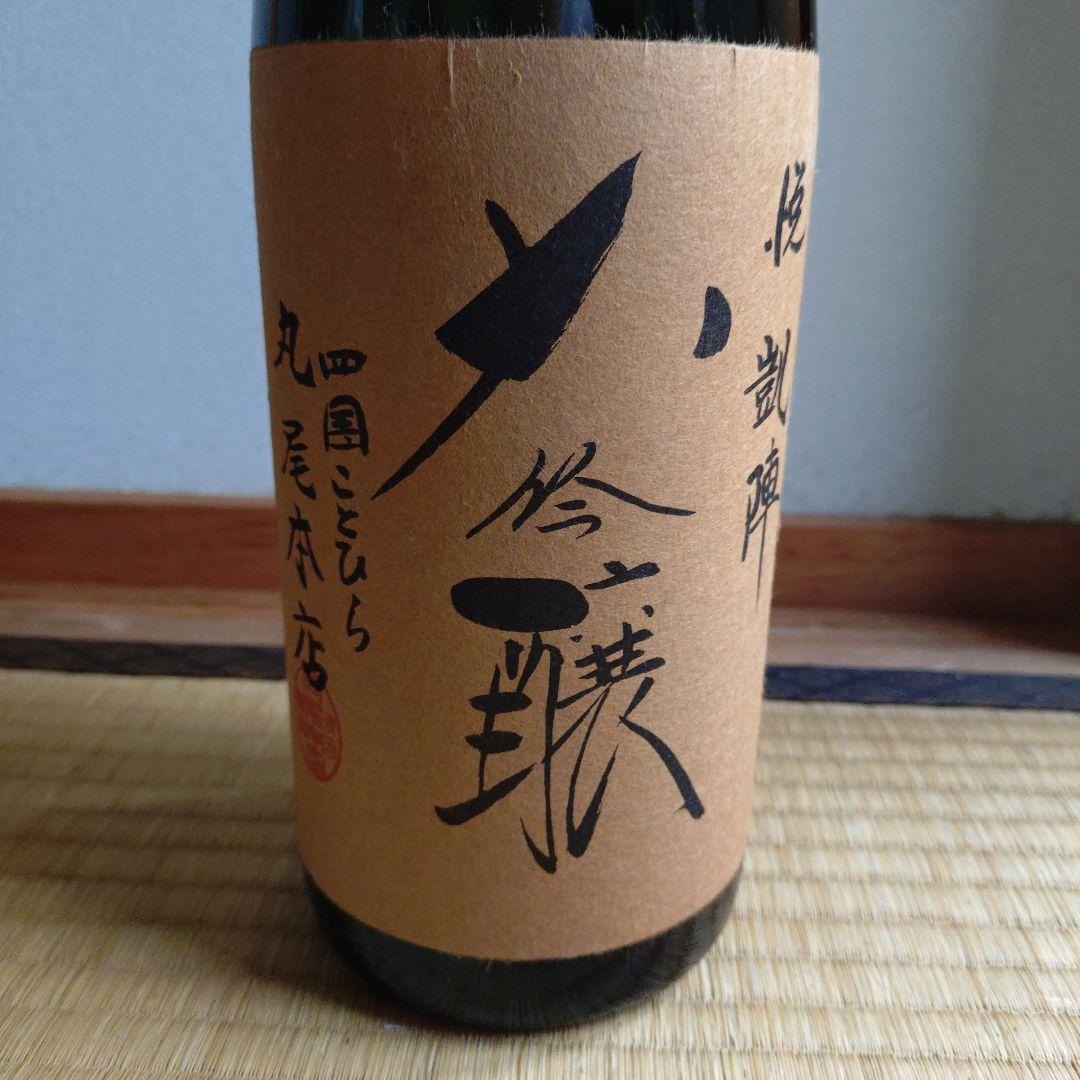 悦凱陣
大吟醸
四国ことひら
丸尾本店